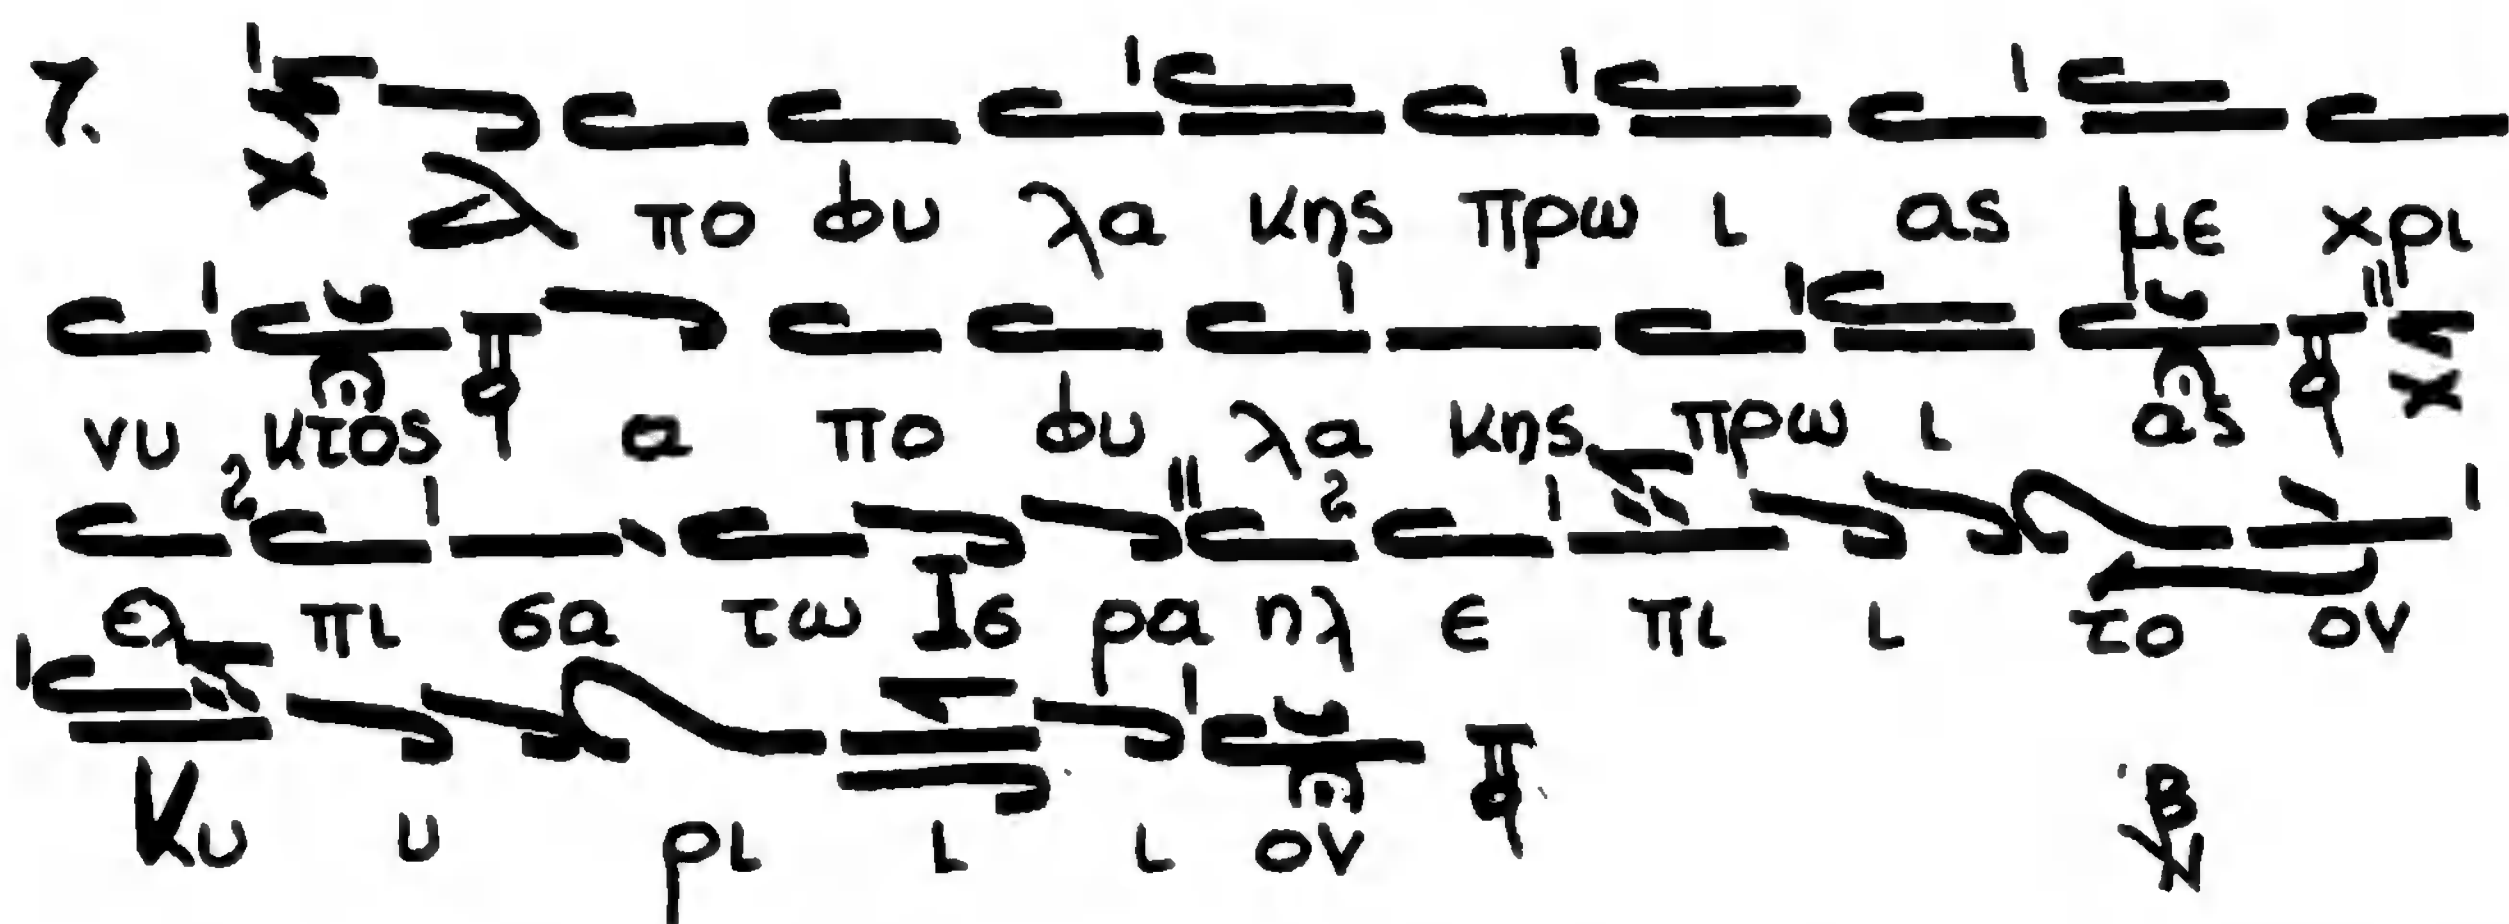 7. Α πο φυ λα κης πρω ι ας με χρι
νυ κτος α πο φυ λα κης πρω ι ας
ελ πι σα τω Ισ ρα ηλ ε πι ι το ον
Κυ υ ρι ι ι ον